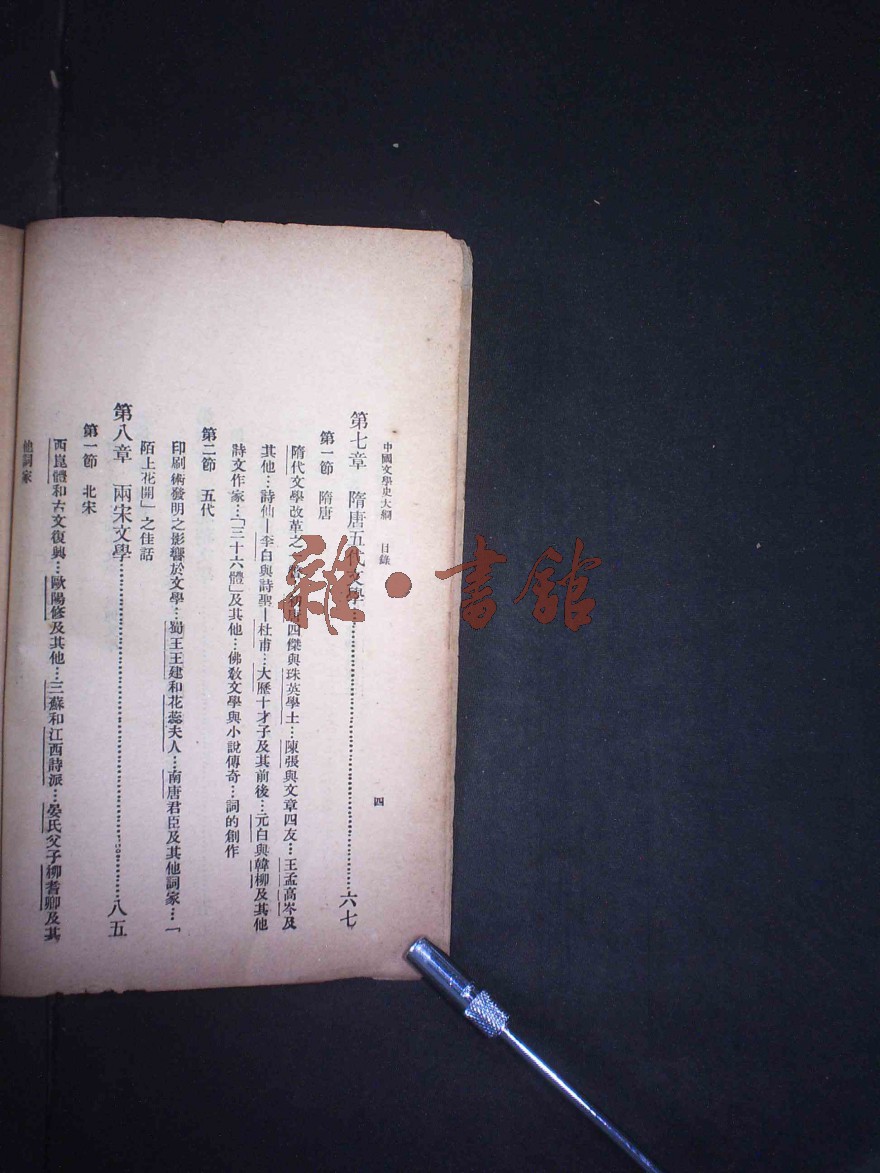 中國文學史大綱 目錄 四
第七章 隋唐五代文學…六七
第一節 隋唐
隋代文學改革之 四傑與珠英學士…陳張與文章四友…王孟高岑及
其他…詩仙—李白與詩聖—杜甫…大歷十才子及其前後…元白與韓柳及其他
詩文作家…「三十六體」及其他…佛教文學與小說傳奇…詞的創作
第二節 五代
印刷術發明之影響於文學…蜀王王建和花蕊夫人…南唐君臣及其他詞家…「
陌上花開」之佳話
第八章 兩宋文學…八五
第一節 北宋
西崑體和古文復興…歐陽修及其他…三蘇和江西詩派…晏氏父子柳耆卿及其
他詞家
雜·書館